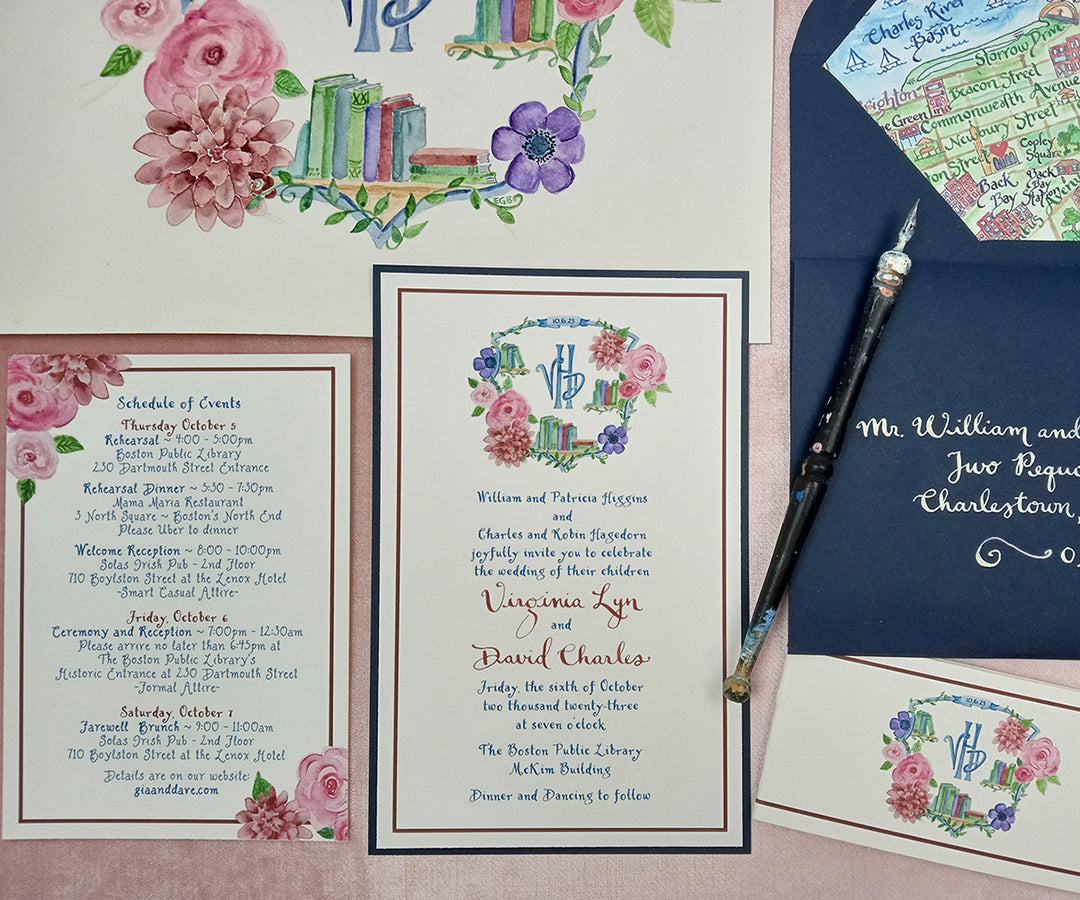 VHD
XXI
EGB
Charles River
Basin
Storrow Drive
Beacon Street
Commonwealth Avenue
Green Line
Newbury Street
Copley
Square
Back
Bay
Back
Bay
Station
Schedule of Events
Thursday October 5
Rehearsal ~ 4:00 - 5:00pm
Boston Public Library
230 Dartmouth Street Entrance
Rehearsal Dinner ~ 5:30 - 7:30pm
Mama Maria Restaurant
3 North Square ~ Boston's North End
Please Uber to dinner
Welcome Reception ~ 8:00 - 10:00pm
Solas Irish Pub - 2nd Floor
710 Boylston Street at the Lenox Hotel
-Smart Casual Attire-
Friday, October 6
Ceremony and Reception ~ 7:00pm - 12:30am
Please arrive no later than 6:45pm at
The Boston Public Library's
Historic Entrance at 230 Dartmouth Street
-Formal Attire-
Saturday, October 7
Farewell Brunch ~ 9:00 - 11:00am
Solas Irish Pub - 2nd Floor
710 Boylston Street at the Lenox Hotel
Details are on our website:
giaanddare.com
10.6.23
VHD
William and Patricia Higgins
and
Charles and Robin Hagedorn
joyfully invite you to celebrate
the wedding of their children
Virginia Lyn
and
David Charles
Friday, the sixth of October
two thousand twenty-three
at seven o'clock
The Boston Public Library
McKim Building
Dinner and Dancing to follow
Mr. William and
Two Pequo
Charlestown,
10.6.23
VHD